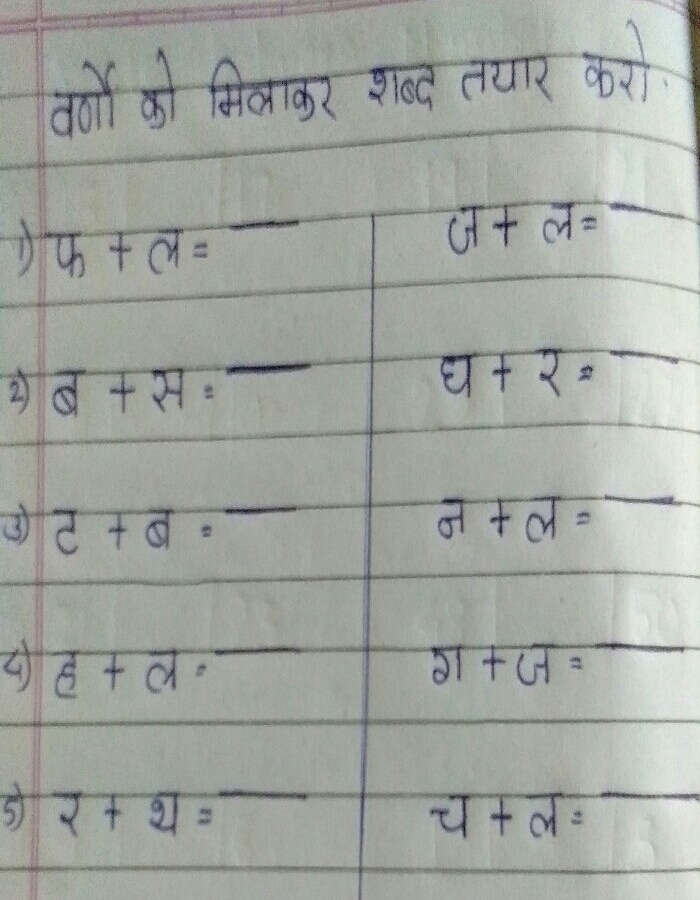 वर्णों को मिलाकर शब्द तयार करो.
1) फ + ल = — ज + ल = —
2) ब + स = — घ + र = —
3) ट + ब = — न + ल = —
4) ह + ल = — ग + ज = —
5) र + थ = — च + ल = —